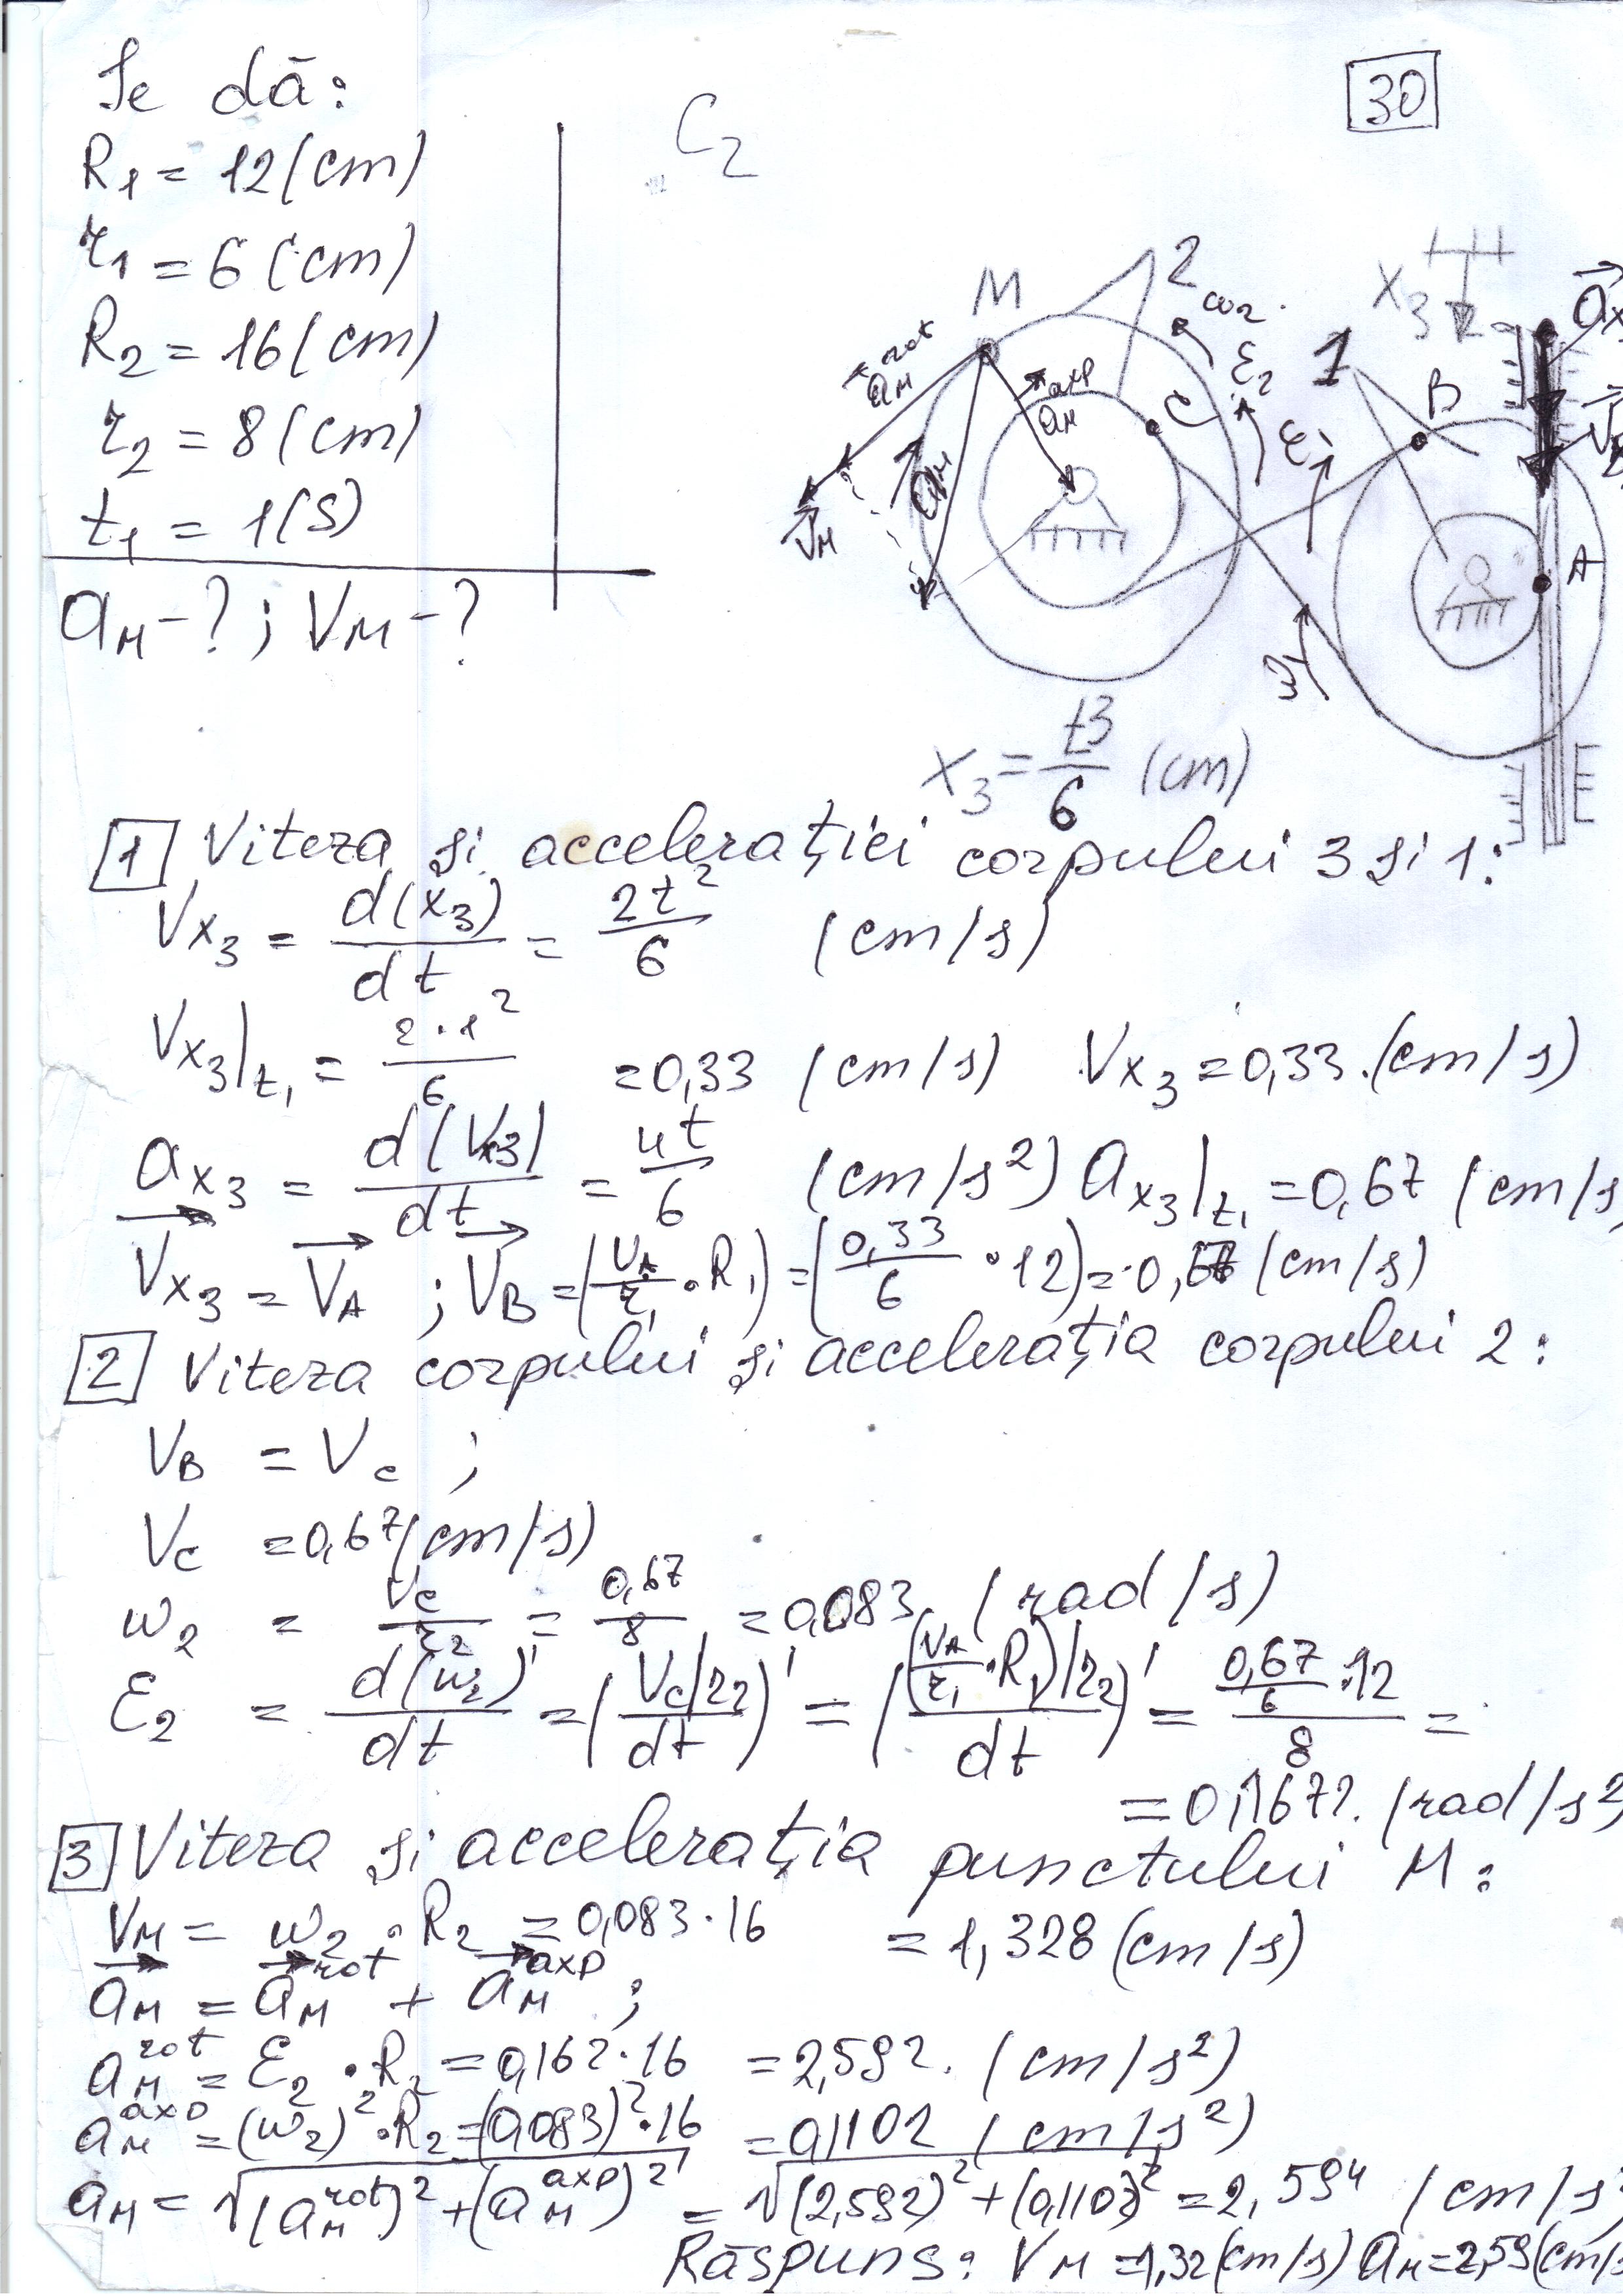 Se dă:
R1 = 12 (cm)
r1 = 6 (cm)
R2 = 16 (cm)
r2 = 8 (cm)
t1 = 1(s)
aM - ? ; VM - ?
C2
30
M
2
ω2
ε2
aM rot
aM axp
aM
VM
C
1
ε1
ω1
B
A
x3
ax
x3 = t3/6 (cm)
1 Viteza și accelerației corpului 3 și 1:
Vx3 = d(x3)/dt = 2t²/6 (cm/s)
Vx3|t1 = 2·1²/6 = 0,33 (cm/s) Vx3 = 0,33. (cm/s)
ax3 = d(Vx3)/dt = 4t/6 (cm/s²) ax3|t1 = 0,67 (cm/s
Vx3 = VA ; VB = (VA/r1 · R1) = (0,33/6 · 12) = 0,67 (cm/s)
2 Viteza corpului și accelerația corpului 2:
VB = Vc ;
Vc = 0,67 (cm/s)
ω2 = Vc/r2 = 0,67/8 = 0,083 (rad/s)
ε2 = d(ω2)'/dt = (Vc/r2 /dt)' = ((VA/r1 · R1)/r2 /dt)' = 0,67/6 · 12 /8 =
= 0,1672. (rad/s²
3 Viteza și accelerația punctului M:
VM = ω2 · R2 = 0,083 · 16 = 1,328 (cm/s)
aM = aM rot + aM axp ;
aM rot = ε2 · R2 = 0,162 · 16 = 2,592. (cm/s²)
aM axp = (ω2)² · R2 = (0,083)² · 16 = 0,1102 (cm/s²)
aM = √(aM rot)² + (aM axp)² = √(2,592)² + (0,1102)² = 2,594 (cm/s
Răspuns: VM = 1,32 (cm/s) aM = 2,59 (cm/